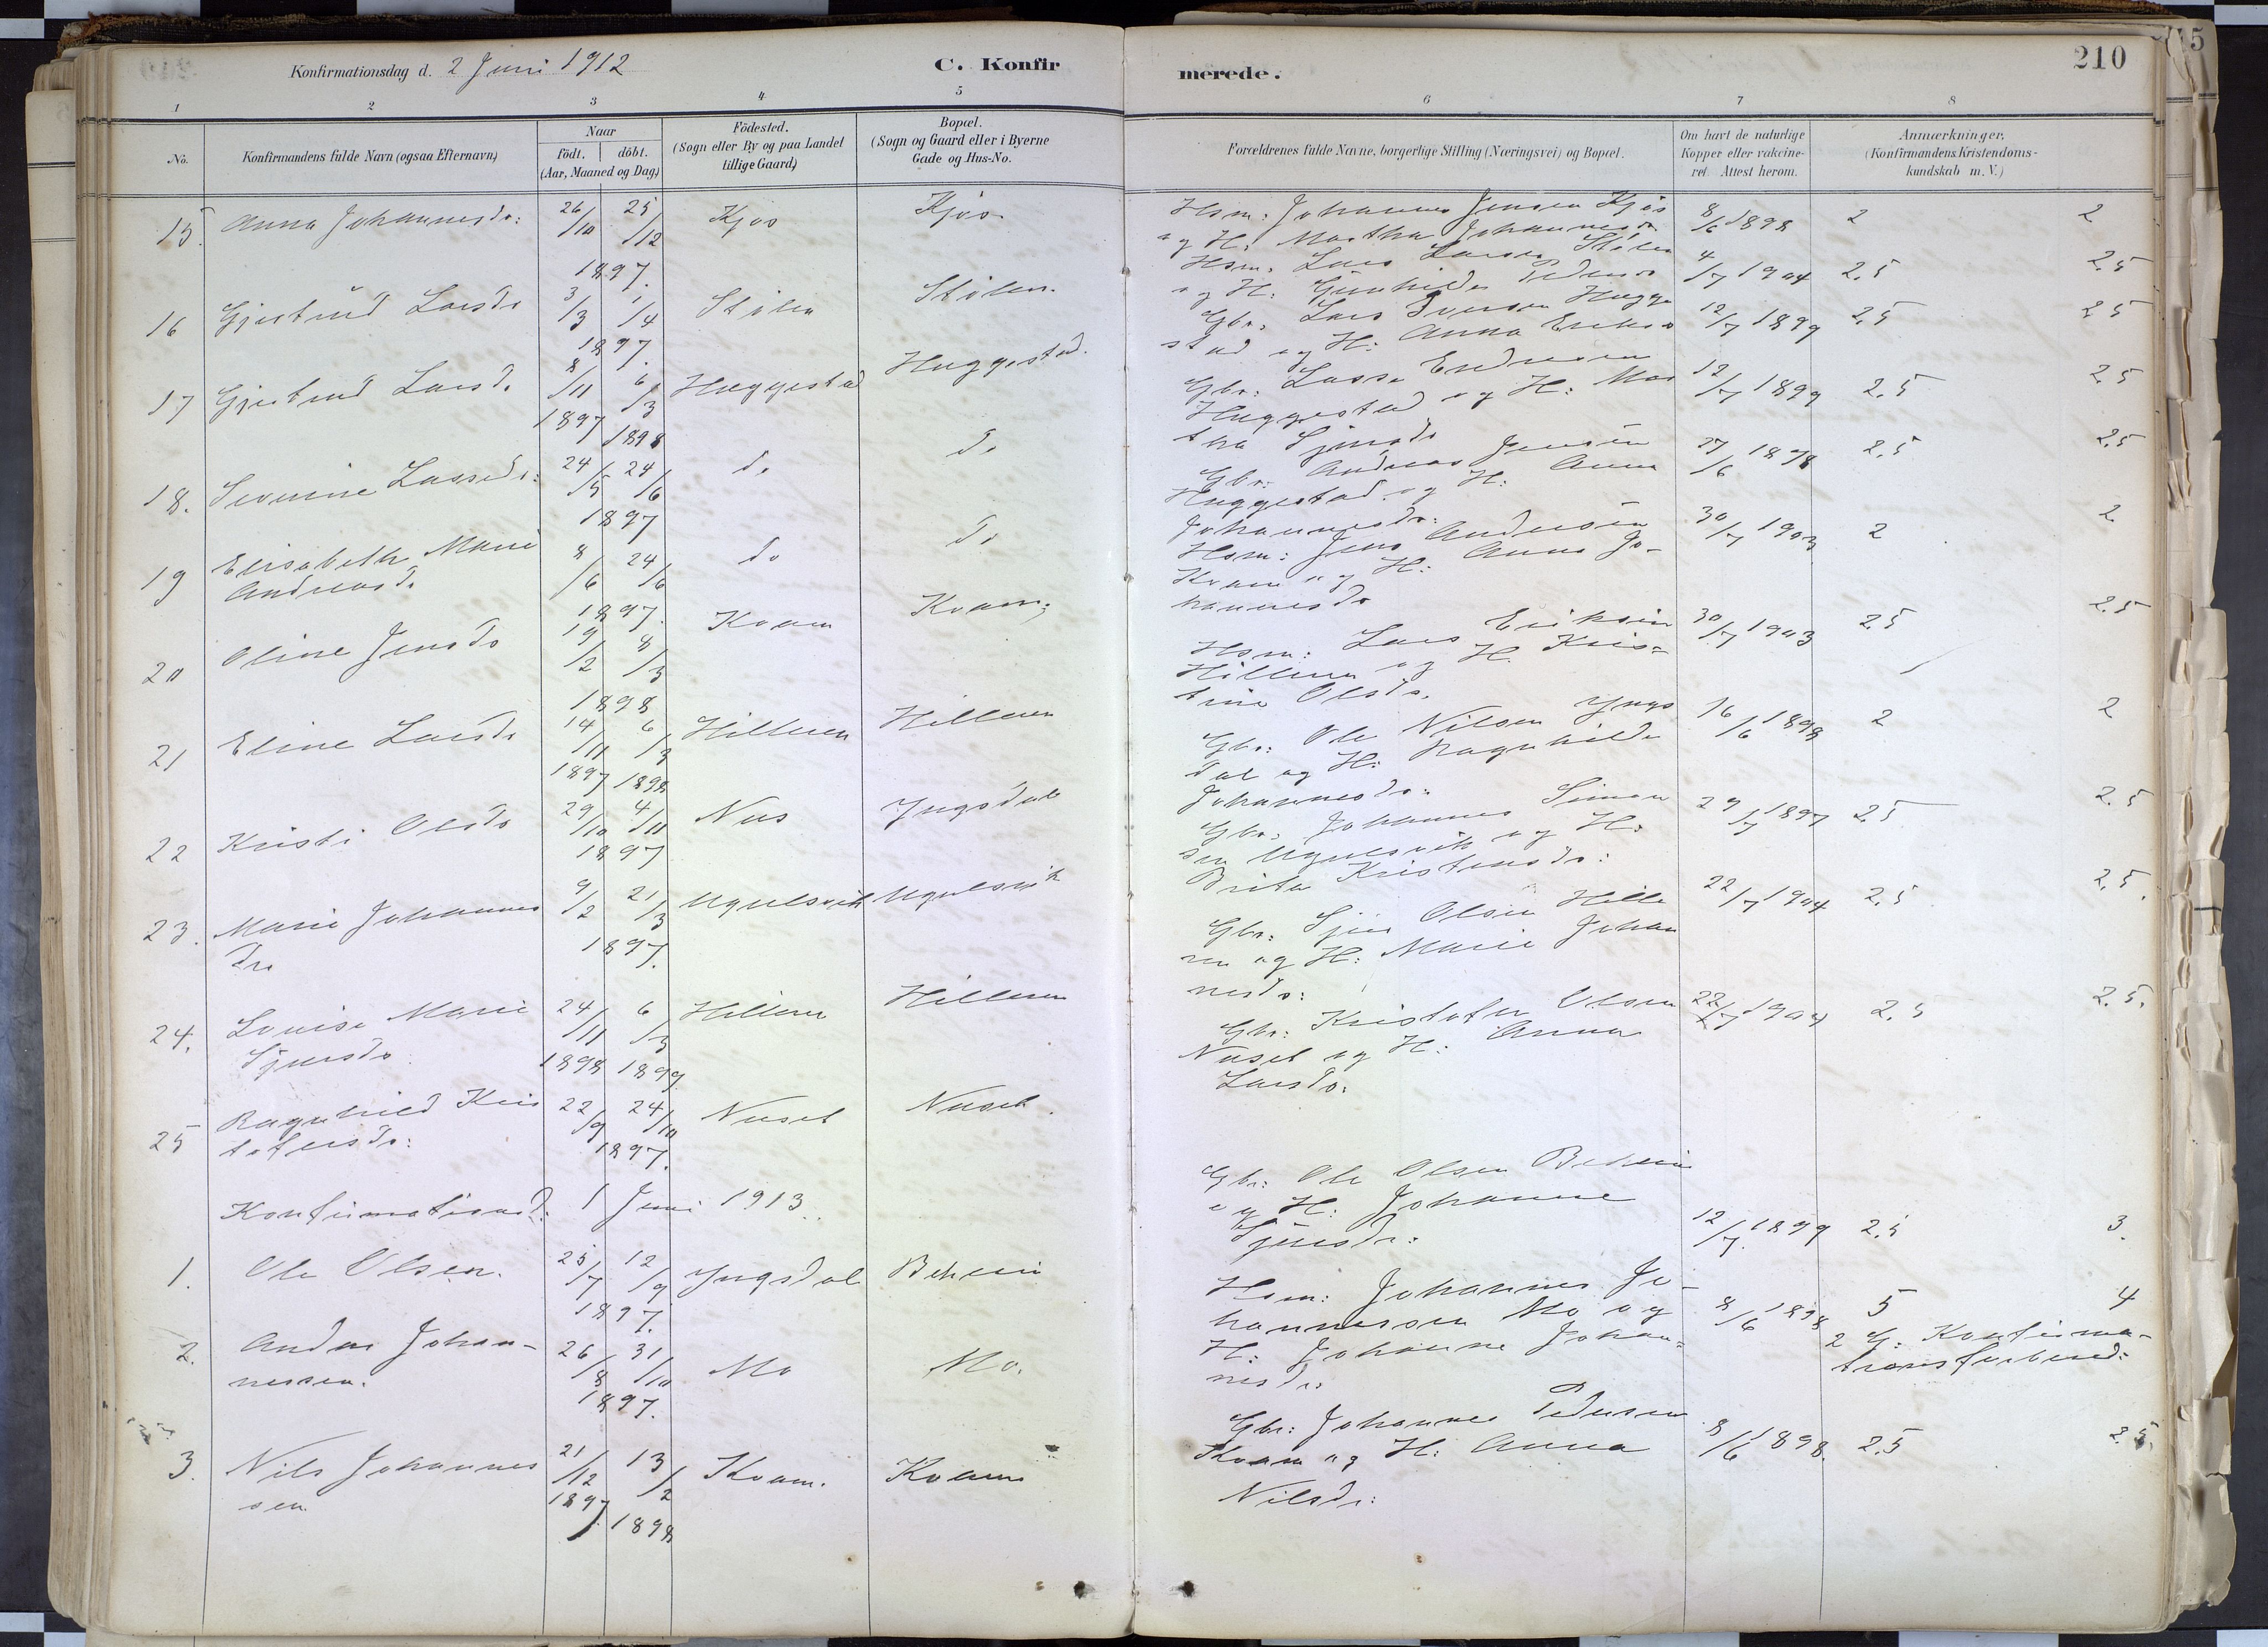 Konfirmationsdag d. 2 Juni 1912
C. Konfir
merede.
210
15
1 2 3 4 5 6 7 8
No.
Konfirmandens fulde Navn (ogsaa Efternavn)
Naar
födt. döbt.
(Aar, Maaned og Dag)
Födested.
(Sogn eller By og paa Landet
tillige Gaard)
Bopæl.
(Sogn og Gaard eller i Byerne
Gade og Hus-No.
Forældrenes fulde Navne, borgerlige Stilling (Næringsvei) og Bopæl.
Om havt de naturlige
Kopper eller vakcine-
ret. Attest herom.
Anmærkninger.
(Konfirmandens Kristendoms-
kundskab m. V.)
15. Anna Johannesdr: 26/10 25/12 1897. Kjos Kjos.
Hsm: Johannes Jensen Kjos
og H: Martha Johannesdr
8/6 1898 2 2
16 Gjertrud Larsdr 3/3 1/4 1897. Stölen Stölen.
Hsm: Lars Larsen Stölen
og H: Gunhilde Pedersdr
4/7 1904 2.5 2.5
17 Gjertrud Larsdr 8/11 1897 6/3 1898 Huggestad Huggestad.
Gbr: Lars Iversen Hugge
stad og H: Anna Eriksdr
12/7 1899 2.5 2.5
18. Severine Lassedr: 24/5 24/6 1897 do do
Gbr: Lasse Endresen
Huggestad og H: Mar
tha Sjursdr
12/7 1899 2.5 2.5
19 Elisabeth Marie
Andreasdr 8/6 24/6 1897. do do
Gbr: Andreas Jensen
Huggestad og H: Anna
Johannesdr:
27/6 1898 2.5 2.5
20 Oline Jensdr 19/2 8/3 1898 Kvam Kvam
Hsm: Jens Andersen
Kvam og H: Anna Jo-
hannesdr
30/7 1903 2 2
21 Eline Larsdr 14/11 1897 6/3 1898 Hilleren Hilleren
Hsm: Lars Eriksen
Hilleren og H. Kris-
tine Olsdr.
30/7 1903 2.5 2.5
22 Kristi Olsdr 29/10 4/11 1897 Nus Yngsdal
Gbr: Ole Nilsen Yngs
dal og H: Ragnhilde
Johannesdr:
16/6 1898 2 2
23. Marie Johannes
dr. 9/2 21/3 1897. Ugulsvik Ugulsvik
Gbr: Johannes Simon
sen Ugulsvik og H:
Brita Kristensdr:
29/7 1897 2.5 2.5
24. Lovise Marie
Sjursdr 24/11 1898 6/3 1899 Hilleren Hilleren
Gbr: Sjur Olsen Hille
ren og H: Marie Johan
nesdr:
22/7 1904 2.5 2.5.
25 Ragnhild Kris
tofersdr: 22/9 24/10 1897. Nuset Nuset.
Gbr: Kristofer Olsen
Nuset og H: Anna
Larsdr:
22/7 1904 2.5 2.5.
Konfirmationsd: 1 Juni 1913.
1. Ole Olsen. 25/7 12/9 1897. Yngsdal
Gbr: Ole Olsen
og H: Johanne
Sjursdr:
12/7 1899 2.5 3.
2. Anders Johan-
nessen. 26/8 31/10 1897. Mo Mo.
Hsm: Johannes Jo-
hannessen Mo og
H: Johanne Johan-
nesdr:
8/6 1898 5 4
2 G. Konfirma-
tionsforbered:
3. Nils Johannes
sen. 21/12 1897 13/2 1898 Kvam. Kvam
Gbr: Johannes Pedersen
Kvam og H: Anna
Nilsdr:
8/6 1898. 2.5 2.5.